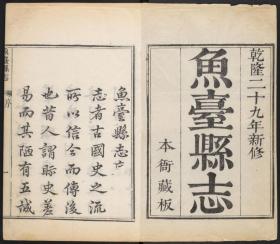 乾隆二十九年新修
魚臺縣志
本衙藏板
魚臺縣志序
志者古國史之流
所以信今而傳後
也昔人謂賒史差
易而其陋有五域